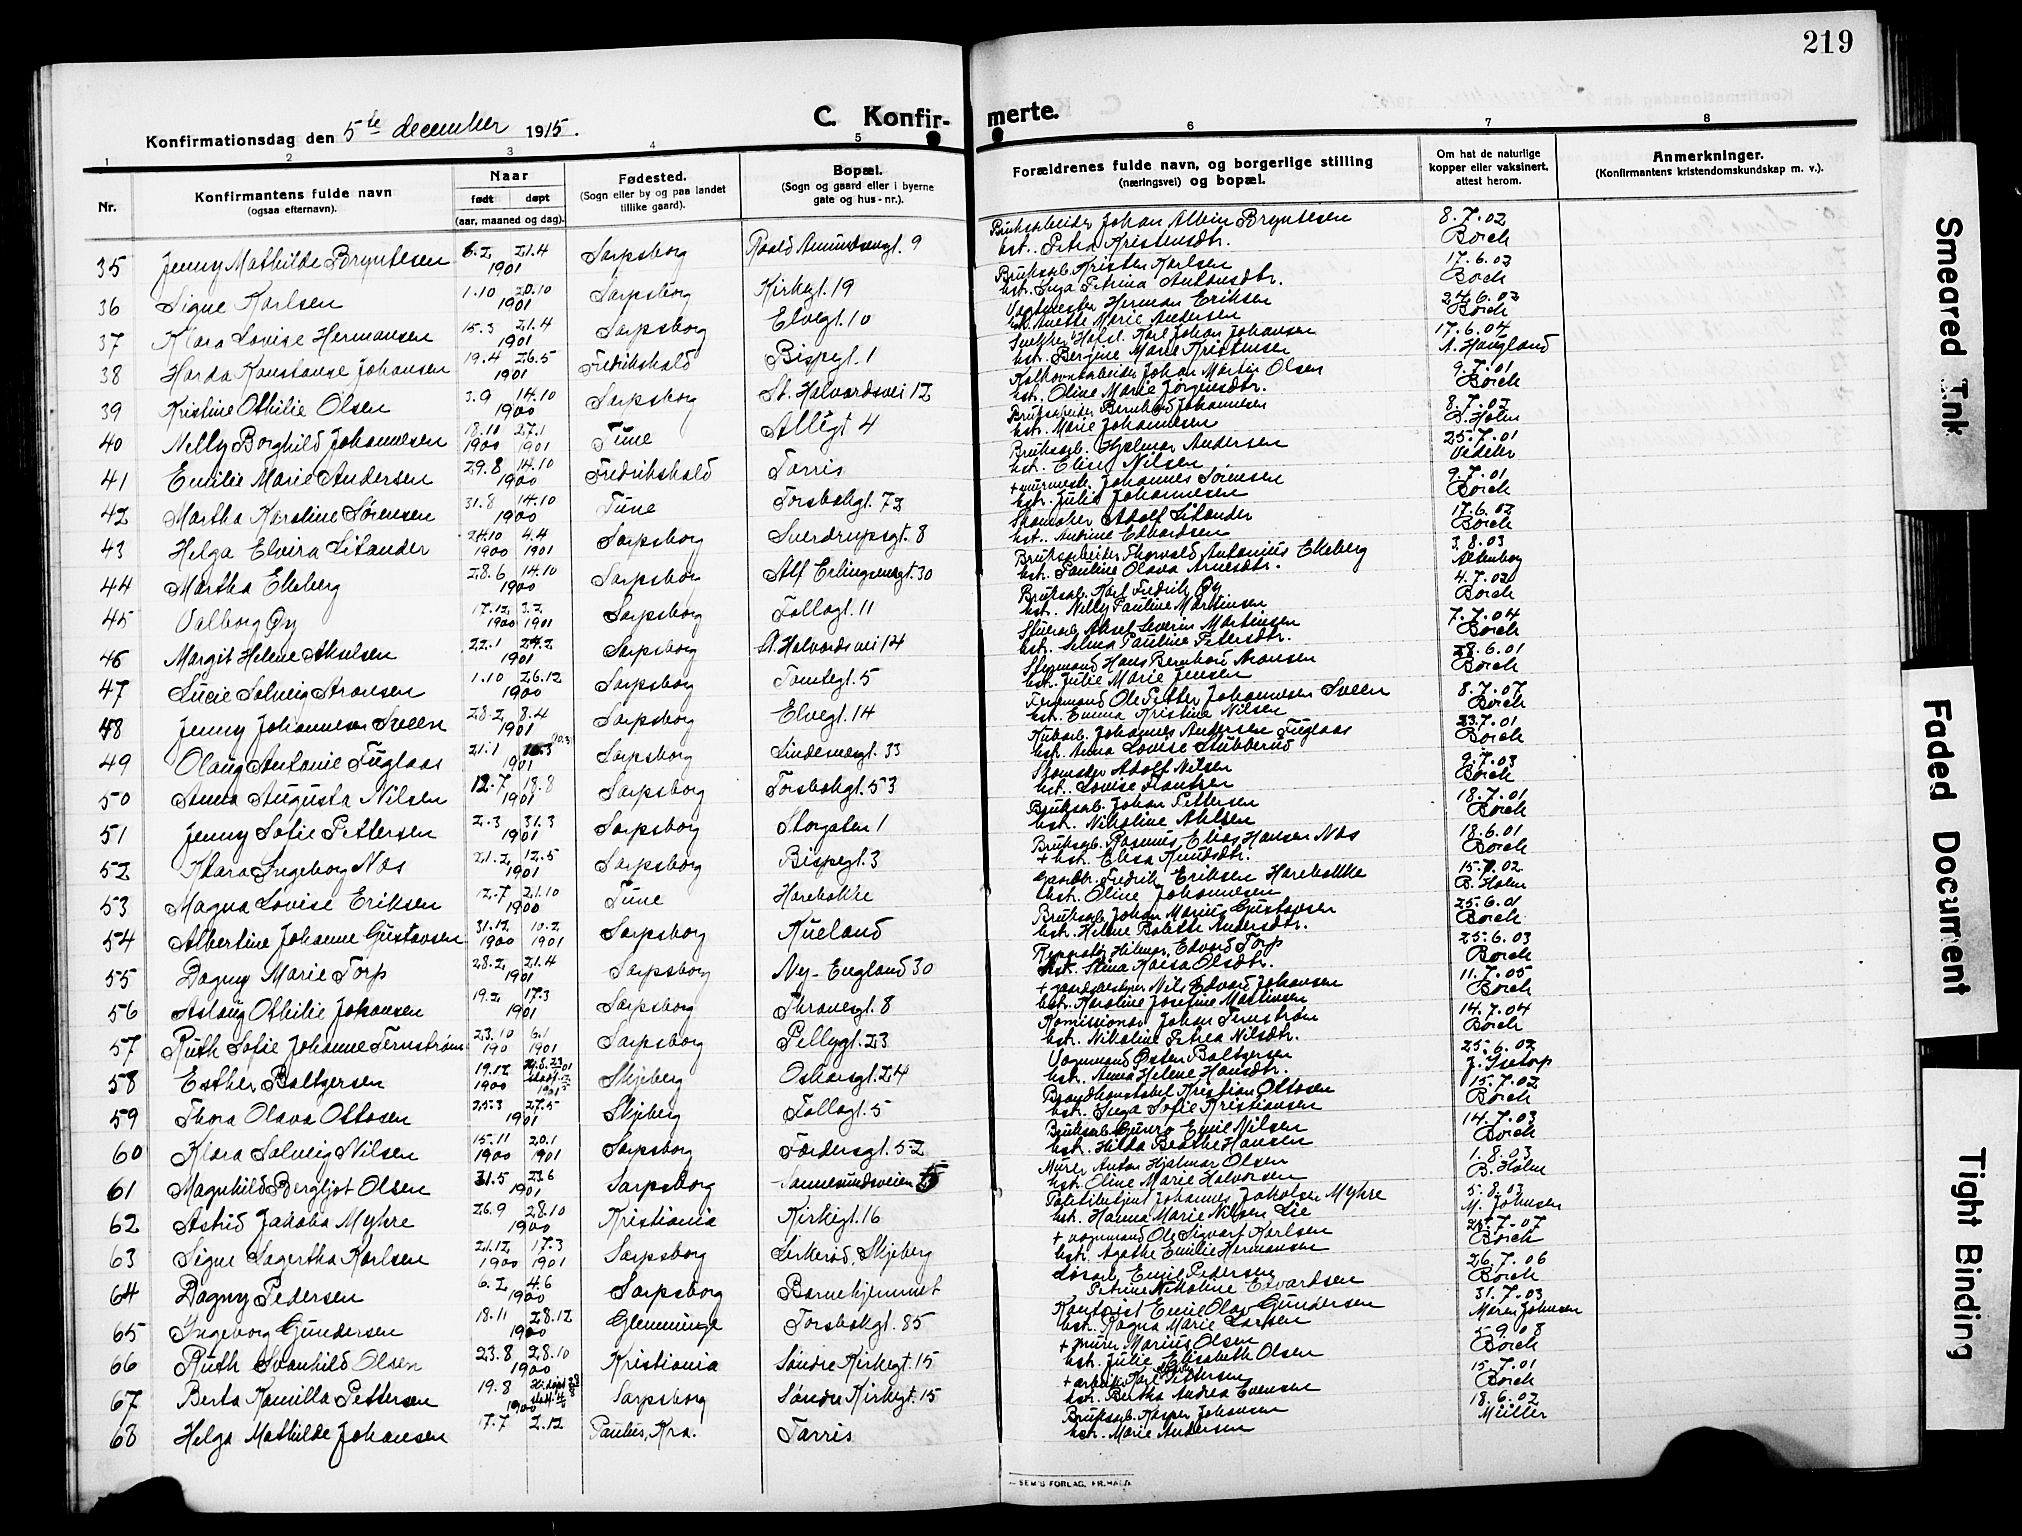 219
Konfirmationsdag den 5te december 1915.
C. Konfir-
merte.
1 2 3 4 5 6 7 8
Nr.
Konfirmantens fulde navn
(ogsaa efternavn).
Naar
født døpt
(aar, maaned og dag).
Fødested.
(Sogn eller by og paa landet
tillike gaard).
Bopæl.
(Sogn og gaard eller i byerne
gate og hus-nr.).
Forældrenes fulde navn, og borgerlige stilling
(næringsvei) og bopæl.
Om hat de naturlige
kopper eller vaksinert,
attest herom.
Anmerkninger.
(Konfirmantens kristendomskundskap m. v.).
35 Jenny Mathilde Bryntesen 6.2 21.4 1901 Sarpsborg Roald Amundsengt. 9 Bruksarbeider Johan Albin Bryntesen 8.7.02
hst. Petra Kristensdtr. Borch
36 Signe Karlsen 1.10 20.10 1901 Sarpsborg Kirkegt. 19 Bruksarb. Kristen Karlsen 17.6.03
hst. Inga Petrina Antonsdtr. Borch
37 Klara Lovise Hermansen 15.3 21.4 1901 Sarpsborg Elvegt. 10 Vogtmester Herman Eriksen 24.6.02
hst. Anette Marie Andersen Borch
38 Harda Konstanse Johansen 19.4 26.5 1901 Fredrikshald Bispegt. 1 Karl Johan Johansen 17.6.04
hst. Bergine Marie Kristensen A. Haugland
39 Kristine Othilie Olsen 3.9 14.10 1900 Sarpsborg St. Halvardsvei 12 Johan Martin Olsen 9.7.01
hst. Oline Marie Jörgensdtr. Borch
40 Nelly Borghild Johannesen 18.11 27.1 1900 1901 Tune Allégt 4 Bruksarbeider Bernhard Johannesen 8.7.02
hst. Marie Johannesen B. Holm
41 Emilie Marie Andersen 29.8 14.10 1900 Fredrikshald Tarris Bruksarb. Hjalmar Andersen 25.7.01
hst. Elise Nilsen Vedeler
42 Martha Karoline Sørensen 31.8 14.10 1900 Tune Torsbekgt. 72 + murmest. Johannes Sørensen 9.7.01
hst. Julie Johannesen Borch
43 Helga Elvira Litander 24.10 4.4 1900 1901 Sarpsborg Sverdrupsgt. 8 Skomaker Adolf Litander 17.6.02
hst. Antine Edvardsen Borch
44 Martha Ekeberg 28.6 14.10 1900 Sarpsborg Alf Erlingsensgt. 30 Bruksarbeider Thorvald Antonius Ekeberg 3.8.03
hst. Pauline Olava Arnesdtr.
45 Valborg Øy 17.12 3.2 1900 1901 Sarpsborg Follogt. 11 Bruksarb. Karl Fredrik Øy 4.7.02
hst. Nelly Pauline Martinsen Borch
46 Margit Helene Akselsen 22.1 24.2 1901 Sarpsborg St. Halvardsvei 14 Aksel Severin Martinsen 7.7.04
hst. Selma Pauline Petersdtr. Borch
47 Lucie Solveig Aronsen 1.10 26.12 1900 Sarpsborg Tomtegt. 5 Hans Bernhard Aronsen 28.6.01
hst. Julie Marie Jensen Borch
48 Jenny Johannesen Sveen 28.2 8.4 1901 Sarpsborg Elvegt. 14 Formand Ole Petter Johannesen Sveen 8.7.07
hst. Emma Kristine Nilsen Borch
49 Olaug Antonie Fuglaas 21.1 10.3 1901 Sarpsborg Lindemansgt. 33 Johannes Antonsen Fuglaas 23.7.01
hst. Anna Lovise Stubberud Borch
50 Anna Augusta Nilsen 12.7 18.8 1901 Sarpsborg Torsbekgt. 53 Skomaker Adolf Nilsen 9.7.03
hst. Lovise Borch
51 Jenny Sofie Pettersen 2.3 31.3 1901 Sarpsborg Storgaten 1 Bruksarb. Johan Pettersen 18.7.01
hst. Nikoline Borch
52 Klara Ingeborg Næs 21.2 12.5 1901 Sarpsborg Bispegt. 3 Bruksarb. Rasmus Elias Hansen Næs 18.6.01
+ hst. Elisa Knudsdtr. Borch
53 Magna Lovise Eriksen 12.7 21.10 1900 Tune Harebakke Gaardbr. Fredrik Eriksen Harebakke 15.7.02
hst. Oline Johannesen B. Holm
54 Albertine Johanne Gustavsen 31.12 10.2 1900 1901 Sarpsborg Kueland Bruksarb. Johan Marius Gustavsen 25.6.01
hst. Helene Bolette Andersdtr. Borch
55 Dagny Marie Torp 28.2 21.4 1901 Sarpsborg Ny-England 30 Hilmar Edvard Torp 25.6.03
hst. Stina Kaisa Olsdtr. Borch
56 Aslaug Othilie Johansen 19.2 17.3 1901 Sarpsborg Thranesgt. 8 Nils Edvard Johansen 11.7.05
hst. Karoline Josefine Martinsen Borch
57 Ruth Sofie Johanne Ternstrøm 23.10 6.1 190 1901 Sarpsborg Pellygt. 23 Komissionær Johan Ternstrøm 14.7.04
hst. Nikoline Petrea Nilsdtr. Borch
58 Esther Baltzersen 19.12 1900 Skjeberg Oskarsgt. 24 Vognmand Østen Baltzersen 25.6.02
hst. Anna Helene Hansdtr. J. Isetorp
59 Thora Olava Ottosen 25.3 27.5 1901 Skjeberg Follogt. 5 Brandkonstabel Kristian Ottosen 15.7.02
hst. Inga Sofie Kristiansen Borch
60 Klara Solveig Nilsen 15.11 20.1 1900 1901 Sarpsborg Færdersgt. 52 Bruksarb. Gunro Emil Nilsen 14.7.03
hst. Hilda Beathe Hansen Borch
61 Magnhild Bergljot Olsen 31.5 23.6 1901 Sarpsborg Sannesundsveien Murer Anton Hjalmar Olsen 1.8.03
hst. Oline Marie Halvorsen B. Holm
62 Astrid Jakoba Myhre 26.9 28.10 1900 Kristiania Kirkegt. 16 Politibetjent Johannes Jakobsen Myhre 5.8.03
hst. Hanna Marie Nilsen Lie M. Johnsen
63 Signe Lagertha Karlsen 21.12 17.3 1900 1901 Sarpsborg Lerkerød, Skjeberg + vognmand Ole Sigvart Karlsen 25.7.07
hst. Agathe Emilie Hermansen Borch
64 Dagny Pedersen 6.2 4.6 1900 Sarpsborg Barnehjemmet Løsarb. Emil Petersen 26.7.06
Petrine Nikoline Edvardsen Borch
65 Ingeborg Gundersen 18.11 28.12 1900 Glemminge Torsbekgt. 85 Kontorist Emil Olav Gundersen 31.7.03
hst. Ragna Marie Larsen Maren Johnsen
66 Ruth Svanhild Olsen 23.8 28.10 1900 Kristiania Søndre Kirkegt. 15 + murer Marius Olsen 5.9.08
hst. Julie Elisabeth Olsen Borch
67 Berta Kamilla Pettersen 19.8 1900 Sarpsborg Søndre Kirkegt. 15 + arbeider Karl Pettersen 15.7.01
hst. Bertha Andrea Evensen Borch
68 Helga Mathilde Johansen 17.7 2.12 Paulus, Kra. Tarris Bruksarb. Kasper Johansen 18.6.02
hst. Marie Andersen Müller
SEM'S FORLAG, FR.HALD.
Smeared Ink
Faded Document
Tight Binding